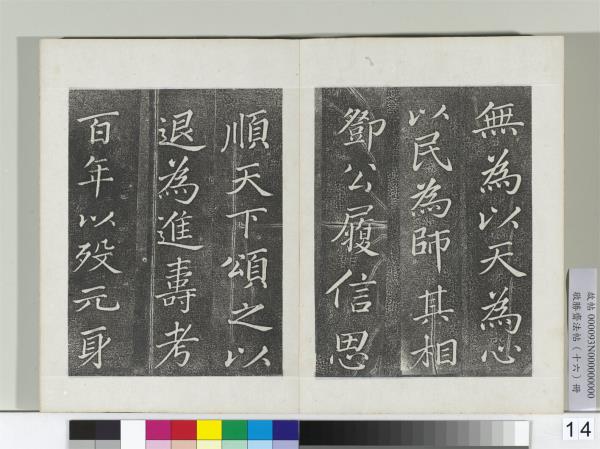 無為以天為心
以民為師其相
鄧公履信思
順天下頌之以
退為進壽考
百年以歿元身
故帖000093N000000000
啟勝齋法帖（十六）冊
14